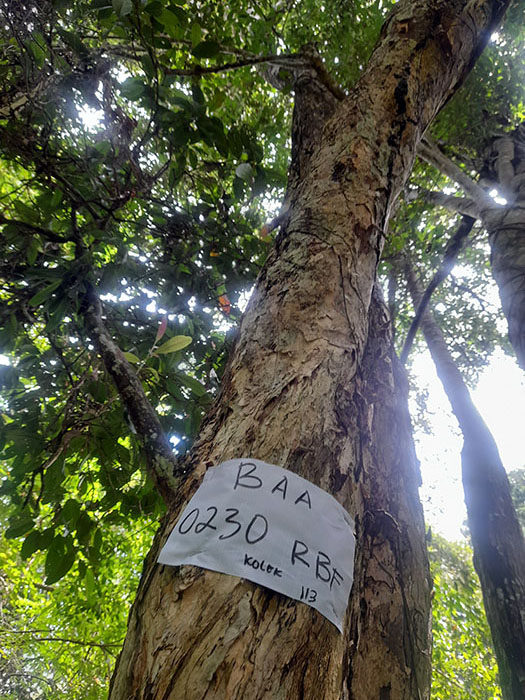 BAA
0230 RBF
KOLEK 113